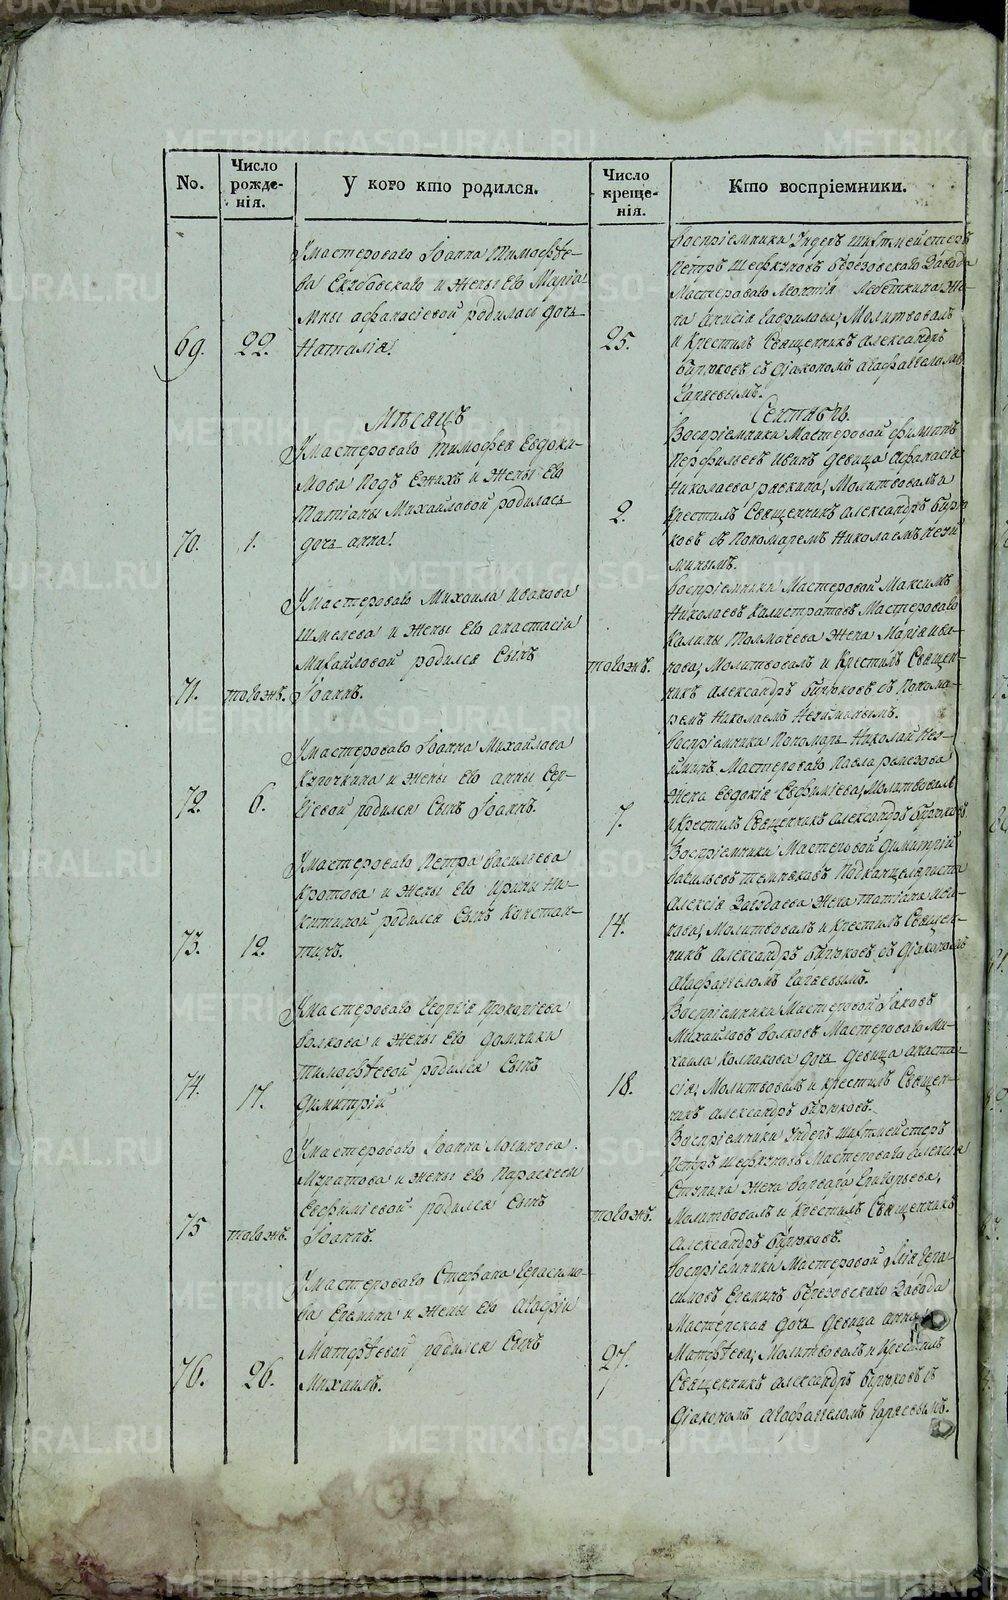 No.
Число рожденія.
У кого кто родился.
Число крещенія.
Кто воспріемники.
69.
22.
У мастероваго Іоанна Тимофѣе-
ва и жены Его Марiа-
мны афанасіевой родилась дочь
Наталія.
25.
Воспріемники Ундеръ Шихтмейстеръ
Петръ Березовскаго Завода
Мастероваго Леонтія Же-
на Молитвовалъ
и Крестилъ Священникъ Александръ
Бирюковъ съ Діакономъ Агафангеломъ
Мѣсяцъ
Сентябрь.
70.
1.
У мастероваго Тимофея Евдоки-
мова и Жены Его
Татіаны Михайловой родилась
дочь анна.
2.
Воспріемники Мастеровой Филиппъ
девица Афанасія
Николаева Молитвовалъ и
Крестилъ Священникъ Александръ Бирю-
ковъ съ Пономаремъ Николаемъ
71.
тогожъ.
У мастероваго Михаила Иванова
Шмелева и Жены Его Анастасіи
Михайловой родился Сынъ
Іоаннъ.
тогожъ.
Воспріемники Мастеровой Максимъ
Николаевъ Калистратовъ Мастероваго
Калины Толмачева Жена Марія Ива-
нова; Молитвовалъ и Крестилъ Священ-
никъ Александръ Бирюковъ съ Понома-
ремъ Николаемъ
72.
6.
У мастероваго Іоанна Михайлова
и Жены Его анны Сер-
гіевой родился Сынъ Іоаннъ.
7.
Воспріемники Пономарь Николай
Мастероваго Павла
Жена Евдокія Евфиміева; Молитвовалъ
и Крестилъ Священникъ Александръ Бирюковъ.
73.
12.
У мастероваго Петра Васильева
Кротова и Жены Его Ирины Ни-
китиной родился Сынъ Констан-
тинъ.
14.
Воспріемники Мастеровой Димитрій
Васильевъ Темняковъ Подканцеляриста
Алексія Жена Татіана
Молитвовалъ и Крестилъ Священ-
никъ Александръ Бирюковъ съ Діакономъ
Агафангеломъ
74.
17.
У мастероваго Георгія Прокопіева
Волкова и Жены Его Домники
Тимофѣевой родился Сынъ
Димитрій
18.
Воспріемники Мастеровой Іаковъ
Михайловъ Волковъ Мастероваго Ми-
хаила Колмакова дочь девица Анаста-
сія; Молитвовалъ и Крестилъ Священ-
никъ Александръ Бирюковъ.
75
тогожъ.
У мастероваго Іоанна Логинова
Муратова и Жены Его Параскевы
Евфиміевой родился Сынъ
Іоаннъ.
тогожъ.
Воспріемники Ундеръ Шихтмейстеръ
Петръ Мастероваго Алексія
Ступина Жена Варвара Григорьева;
Молитвовалъ и Крестилъ Священникъ
Александръ Бирюковъ.
76.
26.
У мастероваго Стефана Герасимо-
ва Еремина и Жены Его Агафіи
Матфѣевой родился Сынъ
Михаилъ.
27.
Воспріемники Мастеровой Илія Гера-
симовъ Ереминъ Березовскаго Завода
Мастерская дочь девица анна
Матфѣева; Молитвовалъ и Крестилъ
Священникъ Александръ Бирюковъ съ
Діакономъ Агафангеломъ
METRIKI.GASO-URAL.RU